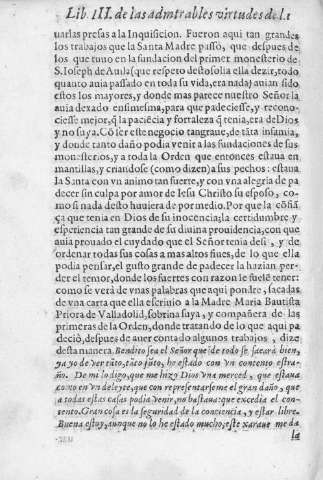 Lib. III. de las admirables virtudes de la
uarlas presas a la Inquisicion. Fueron aqui tan grandes
los trabajos que la Santa Madre passó, que despues de
los que tuuo en la fundacion del primer monesterio de
S. Ioseph de Auila (que respeto desto solia ella dezir, todo
quanto auia passado en toda su vida, era nada) auian sido
estos los mayores, y donde mas parece nuestro Señor la
auia dexado ensimesma, para que padeciesse, y recono-
ciesse mejor, q̃ la paciẽcia y fortaleza q̃ tenia, era de Dios
y no suya. Cõ ser este negocio tan graue, de tãta infamia,
y donde tanto daño podia venir a las fundaciones de sus
monesterios, y a toda la Orden que entonces estaua en
mantillas, y criandose (como dizen) a sus pechos: estaua
la Santa con vn animo tan fuerte, y con vna alegria de pa
decer sin culpa por amor de Iesu Christo su esposo, co-
mo si nada desto huuiera de por medio. Por que la cõfiã
ça que tenia en Dios de su inocencia; la certidumbre y
esperiencia tan grande de su diuina prouidencia, con que
auia prouado el cuydado que el Señor tenia della, y de
ordenar todas sus cosas a mas altos fines, de lo que ella
podia pensar, el gusto grande de padecer la hazian per-
der el temor, donde los fuertes con razon le suelẽ tener:
como se verá de vnas palabras que aqui pondre, sacadas
de vna carta que ella escriuio a la Madre Maria Bautista
Priora de Valladolid, sobrina suya, y compañera de las
primeras de la Orden, donde tratando de lo que aqui pa
deció, despues de auer contado algunos trabajos, dize
desta manera. Bendito sea el Señor que de todo se sacará bien,
ya yo de ver tãto, tãto jũto, he estado con vn contento estra-
ño. De mi lo digo, que me hizo Dios vna merced, que estaua
como en vn deleyte, que con representarseme el gran daño, que
a todas estas casas podia venir, no bastaua: que excedia el con-
tento. Gran cosa es la seguridad de la conciencia, y estar libre.
Buena estoy, aunque no lo he estado mucho, este xaraue me da
la